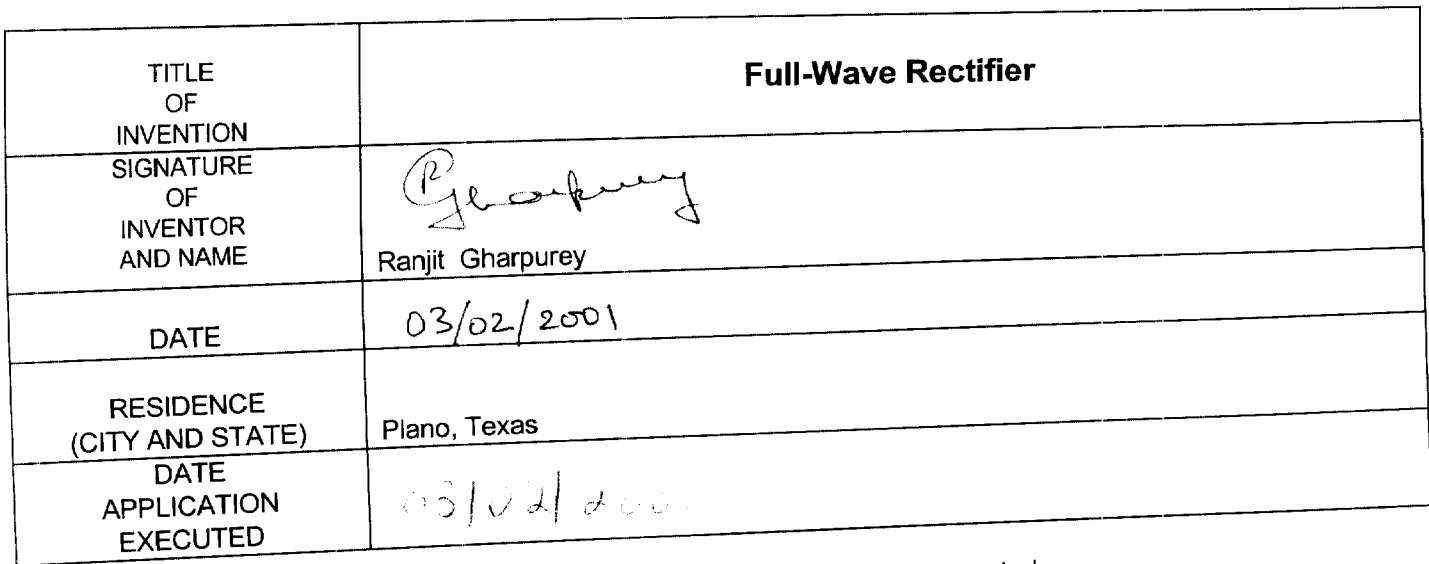 TITLE
OF
INVENTION
Full-Wave Rectifier
SIGNATURE
OF
INVENTOR
AND NAME
R Gharpurey
Ranjit Gharpurey
DATE
03/02/2001
RESIDENCE
(CITY AND STATE)
Plano, Texas
DATE
APPLICATION
EXECUTED